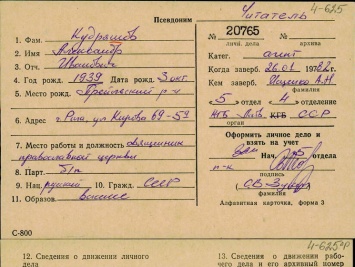 4-625
Псевдоним Читатель
1. Фам. Кудряшов
№ 20765 №
личн. дела архива
2. Имя Александр
Катег. агент
3. Отч. Иванович
Когда заверб. 26.01
4. Год рожд. 1939 Дата рожд. 3 окт.
Кем заверб. А.Н.
фамилия
5. Место рожд. р-н
5 отдел 4 отделение
6. Адрес г Рига, ул Кирова 69-59
КГБ Лат. КГБ ССР
орган
Оформить личное дело и
взять на учет
7. Место работы и должность священник
православной церкви
Нач. отдела
п-к
подпись
8. Парт. б/п
9. Нац. русский 10. Гражд. СССР
фамилия
11. Образов. высшее
Алфавитная карточка, форма 3
С-800
4-625об
12. Сведения о движении личного
дела
13. Сведения о движении рабо-
чего дела и его архивный номер